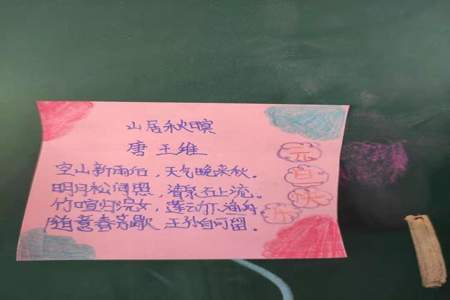 山居秋暝
唐 王维
空山新雨后，天气晚来秋。
明月松间照，清泉石上流。
竹喧归浣女，莲动下渔舟。
随意春芳歇，王孙自可留。
元
旦
快
乐